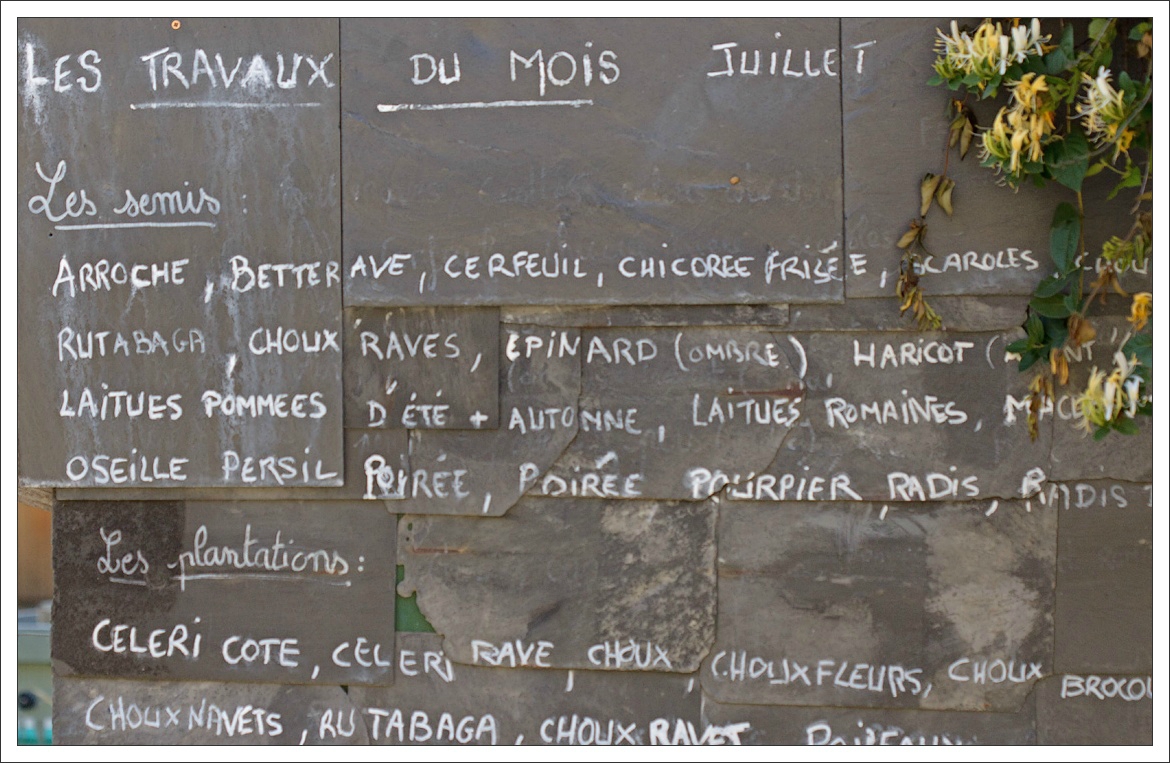 LES TRAVAUX DU MOIS JUILLET
Les semis :
ARROCHE, BETTERAVE, CERFEUIL, CHICOREE FRISÉE, SCAROLES,
RUTABAGA, CHOUX RAVES, EPINARD (OMBRE) HARICOT (
LAITUES POMMEES D'ÉTÉ + AUTONNE, LAITUES, ROMAINES,
OSEILLE PERSIL POIRÉE, POIRÉE POURPIER, RADIS, RADIS
Les plantations :
CELERI COTE, CELERI RAVE, CHOUX, CHOUX FLEURS, CHOUX BROCOL
CHOUX NAVETS, RUTABAGA, CHOUX RAVET